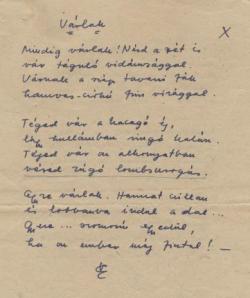 Várlak
X
Mindig várlak! Nézd a rét is
vár táguló vidámsággal.
Várnak a régi tavaszi fák
hamvas-cirkó fin virággal.
Téged vár a kacagó ég,
hullámban ringó határ.
Téged vár az alkonyatban
véred zúgó lombsusogás.
várlak. Harmat csillan
és lobbanva indul a dal...
szomorú egyedül,
ha az ember még fiatal! —